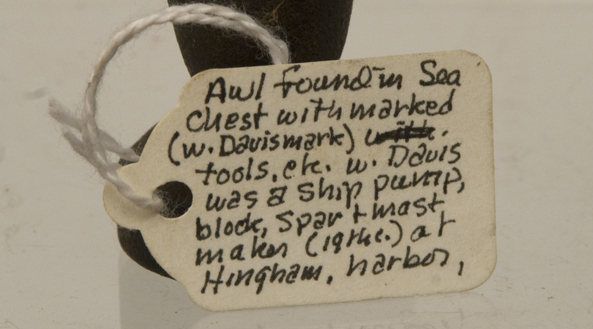 Awl found in Sea
Chest with marked
(W. Davis mark) with.
tools, etc. W. Davis
was a ship pump,
block, spar + mast
maker (19thc.) at
Hingham, harbor,